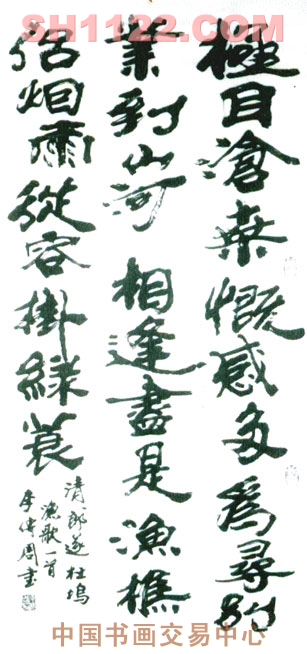 SH1122.COM
極目滄桑慨感多為尋別
業到山河相逢盡是漁樵
侶烟雨從容掛綠蓑
清郎遂杜塢
漁歌一首
李傳周書
中国书画交易中心